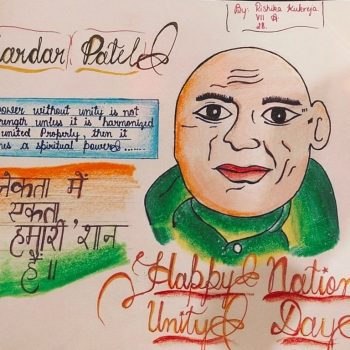 By: Rishika Kukreja
VII A
28.
ardar Patel
power without unity is not
rength unless it is harmonized
united Properly, then it
es a spiritual power......
नेकता में
एकता
हमारी शान
है॥
Happy Nation
Unity Day